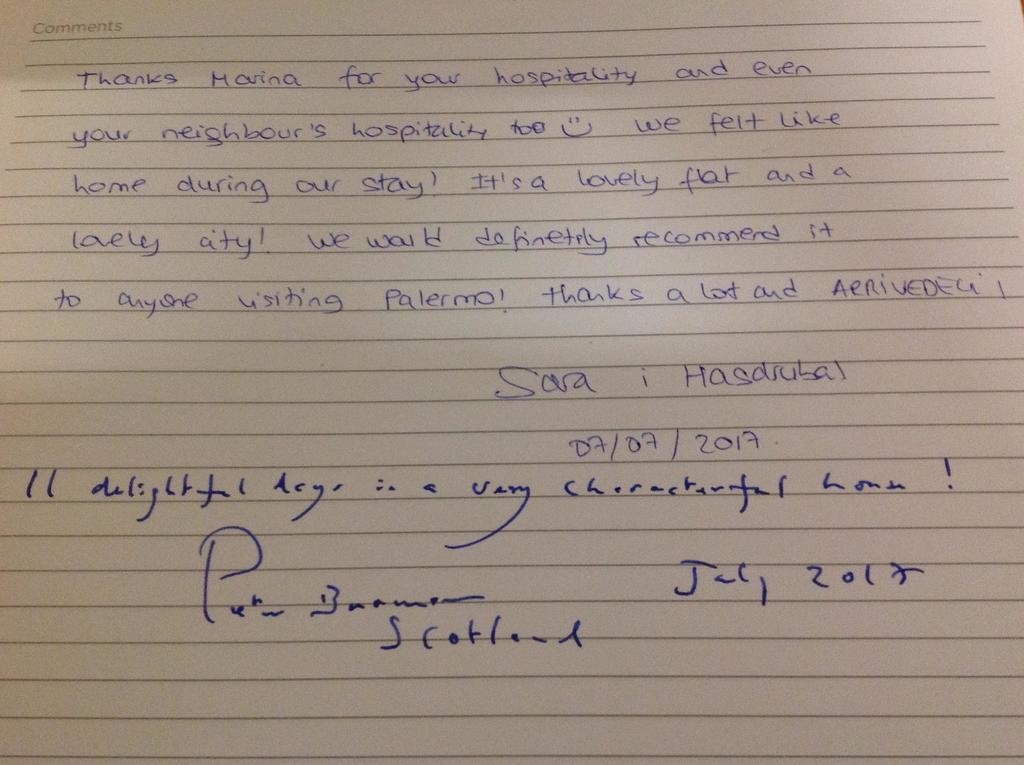 Comments
Thanks Marina for your hospitality and even
your neighbour's hospitality too we felt like
home during our stay! It's a lovely flat and a
lovely city! We would definetrly recommend it
to anyone visiting Palermo! thanks a lot and ARRIVEDECi!
Sara i Hasdrubal
07/07/2017.
11 delightful days in a very characterful house!
Peter
July 2017
Scotland